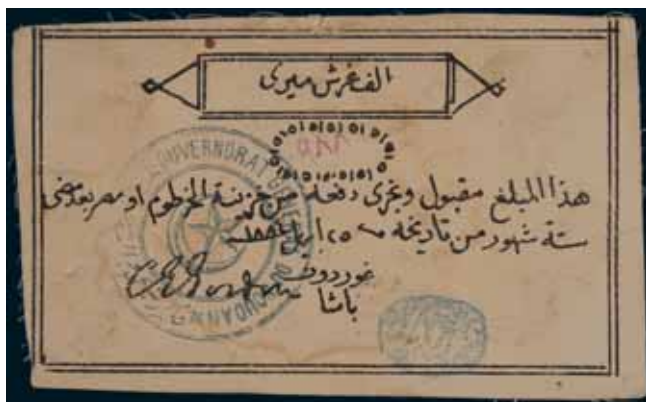 الف غرش ميرى
هذا المبلغ مقبول وتجرى دفعه من خزينة الخرطوم او مصر بعد مضى
ستة شهور من تاريخه ٢٥ ابريل ١٨٨٤
غوردون
باشا
C G Gordon
GOUVERNORAT GENERAL SOUDAN